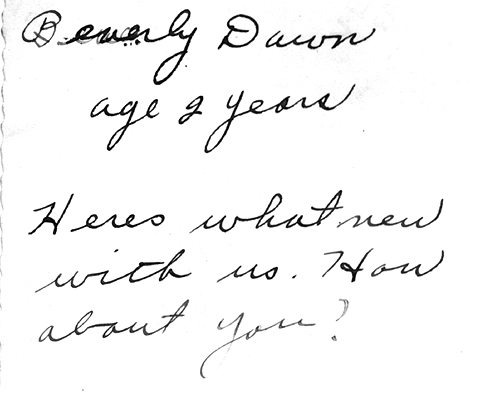 Beverly Dawn
age 2 years
Heres what new
with us. How
about you?